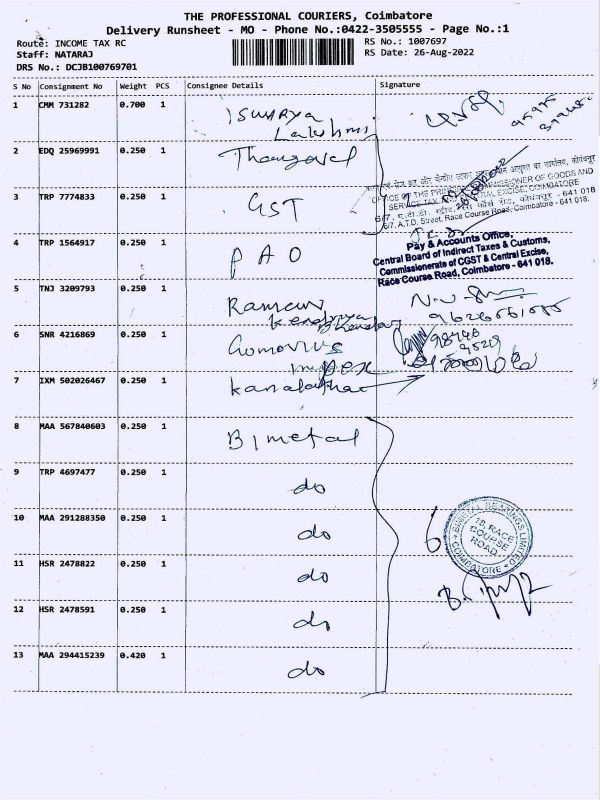 THE PROFESSIONAL COURIERS, Coimbatore
Delivery Runsheet - MO - Phone No.:0422-3505555 - Page No.:1
Route: INCOME TAX RC
RS No.: 1007697
Staff: NATARAJ
RS Date: 26-Aug-2022
DRS No.: DCJB100769701
S No Consignment No Weight PCS Consignee Details Signature
1 CMM 731282 0.700 1 ISWARYA
Lakshmi
2 EDQ 25969991 0.250 1 Thangavel
3 TRP 7774833 0.250 1 GST
OFFICE OF THE PRINCIPAL COMMISSIONER OF GOODS AND
SERVICE TAX CENTRAL EXCISE, COIMBATORE
6/7, A.T.D. Street, Race Course Road, Coimbatore - 641 018.
4 TRP 1564917 0.250 1 PAO
Pay & Accounts Office,
Central Board of Indirect Taxes & Customs,
Commissionerate of CGST & Central Excise,
Race Course Road, Coimbatore - 641 018.
5 TNJ 3209793 0.250 1
6 SNR 4216869 0.250 1
Impex
7 IXM 502026467 0.250 1
8 MAA 567840603 0.250 1 Bimetal
9 TRP 4697477 0.250 1 do
10 MAA 291288350 0.250 1 do
6
BIMETAL BEARINGS LIMITED
18, RACE
COURSE
ROAD
COIMBATORE
11 HSR 2478822 0.250 1 do
12 HSR 2478591 0.250 1 do
13 MAA 294415239 0.420 1 do